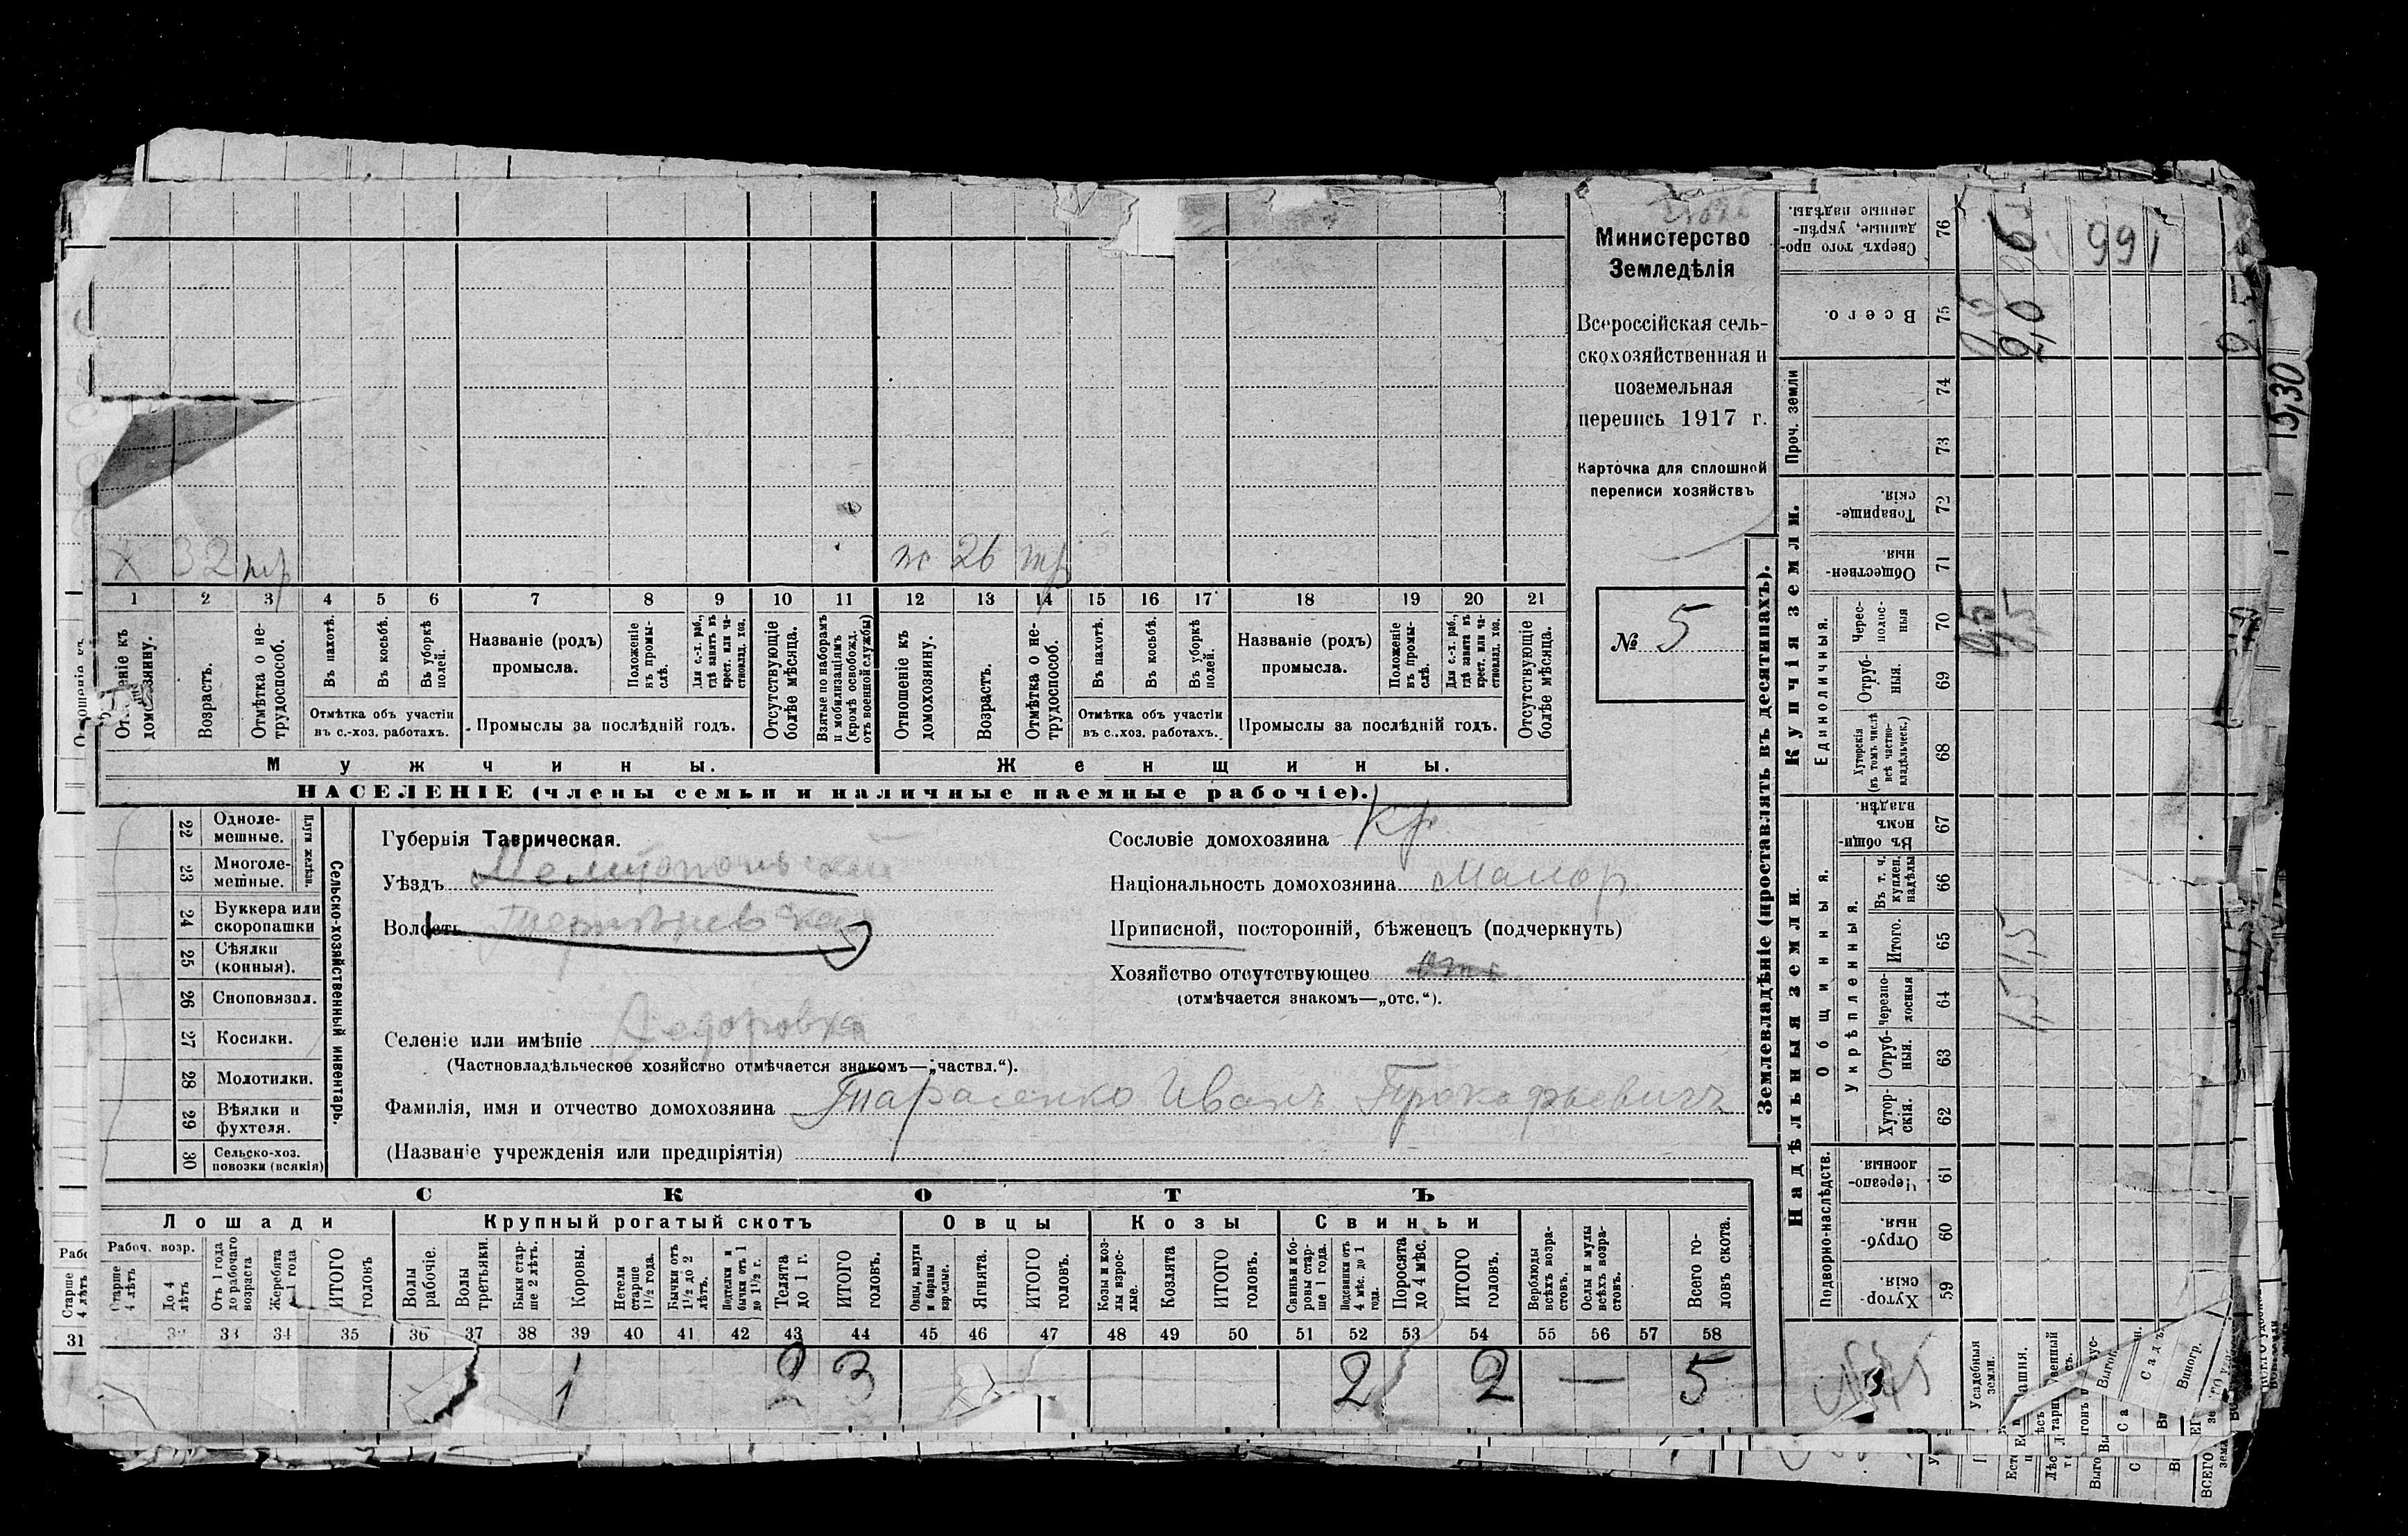 Министерство
Земледѣлія
Всероссійская сель-
скохозяйственная и
поземельная
перепись 1917 г.
Карточка для сплошной
переписи хозяйствъ
№ 5
х 32 тр
ж 26 тр
1 2 3 4 5 6 7 8 9 10 11 12 13 14 15 16 17 18 19 20 21
Отношеніе къ домохозяину.
Возрастъ.
Отмѣтка о не-трудоспособ.
Въ пахотѣ.
Въ косьбѣ.
Въ уборкѣ полей.
Отмѣтка объ участіи въ с.-хоз. работахъ.
Названіе (родъ) промысла.
Положеніе въ промы-слѣ.
Для с.-х. раб., гдѣ занятъ въ крест. или ча-стновлад. хоз.
Промыслы за послѣдній годъ.
Отсутствующіе болѣе мѣсяца.
Взятые по наборамъ и мобилизаціямъ (кромѣ освобожд. отъ военной службы)
Отношеніе къ домохозяину.
Возрастъ.
Отмѣтка о не-трудоспособ.
Въ пахотѣ.
Въ косьбѣ.
Въ уборкѣ полей.
Отмѣтка объ участіи въ с.-хоз. работахъ.
Названіе (родъ) промысла.
Положеніе въ промы-слѣ.
Для с.-х. раб., гдѣ занята въ крест. или ча-стновлад. хоз.
Промыслы за послѣдній годъ.
Отсутствующіе болѣе мѣсяца.
Мужчины. Женщины.
НАСЕЛЕНІЕ (члены семьи и наличные наемные рабочіе).
22 Одноле-мешные.
23 Многоле-мешные.
Плуги желѣзн.
24 Буккера или скоропашки
25 Сѣялки (конныя).
26 Сноповязал.
27 Косилки.
28 Молотилки.
29 Вѣялки и фухтеля.
30 Сельско-хоз. повозки (всякія)
Сельско-хозяйственный инвентарь.
Губернія Таврическая.
Уѣздъ Мелитопольскій
Волость
Селеніе или имѣніе Федоровка
(Частновладѣльческое хозяйство отмѣчается знакомъ—„частвл.“).
Фамилія, имя и отчество домохозяина Тарасенко Иванъ Прокофьевичъ
(Названіе учрежденія или предпріятія)
Сословіе домохозяина кр.
Національность домохозяина Малор.
Приписной, посторонній, бѣженецъ (подчеркнуть)
Хозяйство отсутствующее
(отмѣчается знакомъ—„отс.“).
СКОТЪ
Лошади Крупный рогатый скотъ Овцы Козы Свиньи
Рабоч. возр.
Старше 4 лѣтъ
До 4 лѣтъ
Отъ 1 года до рабочаго возраста
Жеребята до 1 года
ИТОГО головъ
Волы рабочіе.
Волы третьяки.
Быки стар-ше 2 лѣтъ.
Коровы.
Нетели старше 1½ года.
Бычки отъ 1½ до 2 лѣтъ.
Подтелки и бычки отъ 1 до 1½ г.
Телята до 1 г.
ИТОГО головъ.
Овцы, валухи и бараны взрослые.
Ягнята.
ИТОГО головъ.
Козы и коз-лы взрос-лые.
Козлята
ИТОГО головъ.
Свиньи и бо-ровы стар-ше 1 года.
Подсвинки отъ 4 мѣс. до 1 года.
Поросята до 4 мѣс.
ИТОГО головъ.
Верблюды всѣхъ возра-стовъ.
Ослы и мулы всѣхъ возра-стовъ.
Всего го-ловъ скота.
33 34 35 36 37 38 39 40 41 42 43 44 45 46 47 48 49 50 51 52 53 54 55 56 57 58
1 2 3 2 2 — 5
Землевладѣніе (проставлять въ десятинахъ).
Купчія земли.
Проч. земли
Единоличныя.
Надѣльныя земли.
Общинныя.
Укрѣпленныя.
Подворно-наслѣдств.
76 Сверхъ того про-данные, укрѣп-ленные надѣлы.
75 Всего.
74
73
72 Товарище-скія.
71 Обществен-ныя.
70 Черес-полос-ныя
69 Отруб-ныя.
68 Хуторскія (въ томъ числѣ всѣ частно-владѣльческ.)
67 Въ общи-номъ владѣн.
66 Въ т. ч. куплен. надѣлы
65 Итого.
64 Черезпо-лосныя
63 Отруб-ныя.
62 Хутор-скія.
61 Черезпо-лосныя.
60 Отруб-ныя.
59 Хутор-скія.
991
2,0
1,5 1,5
15,30
Усадебныя земли.
Садъ.
Виногр.
31